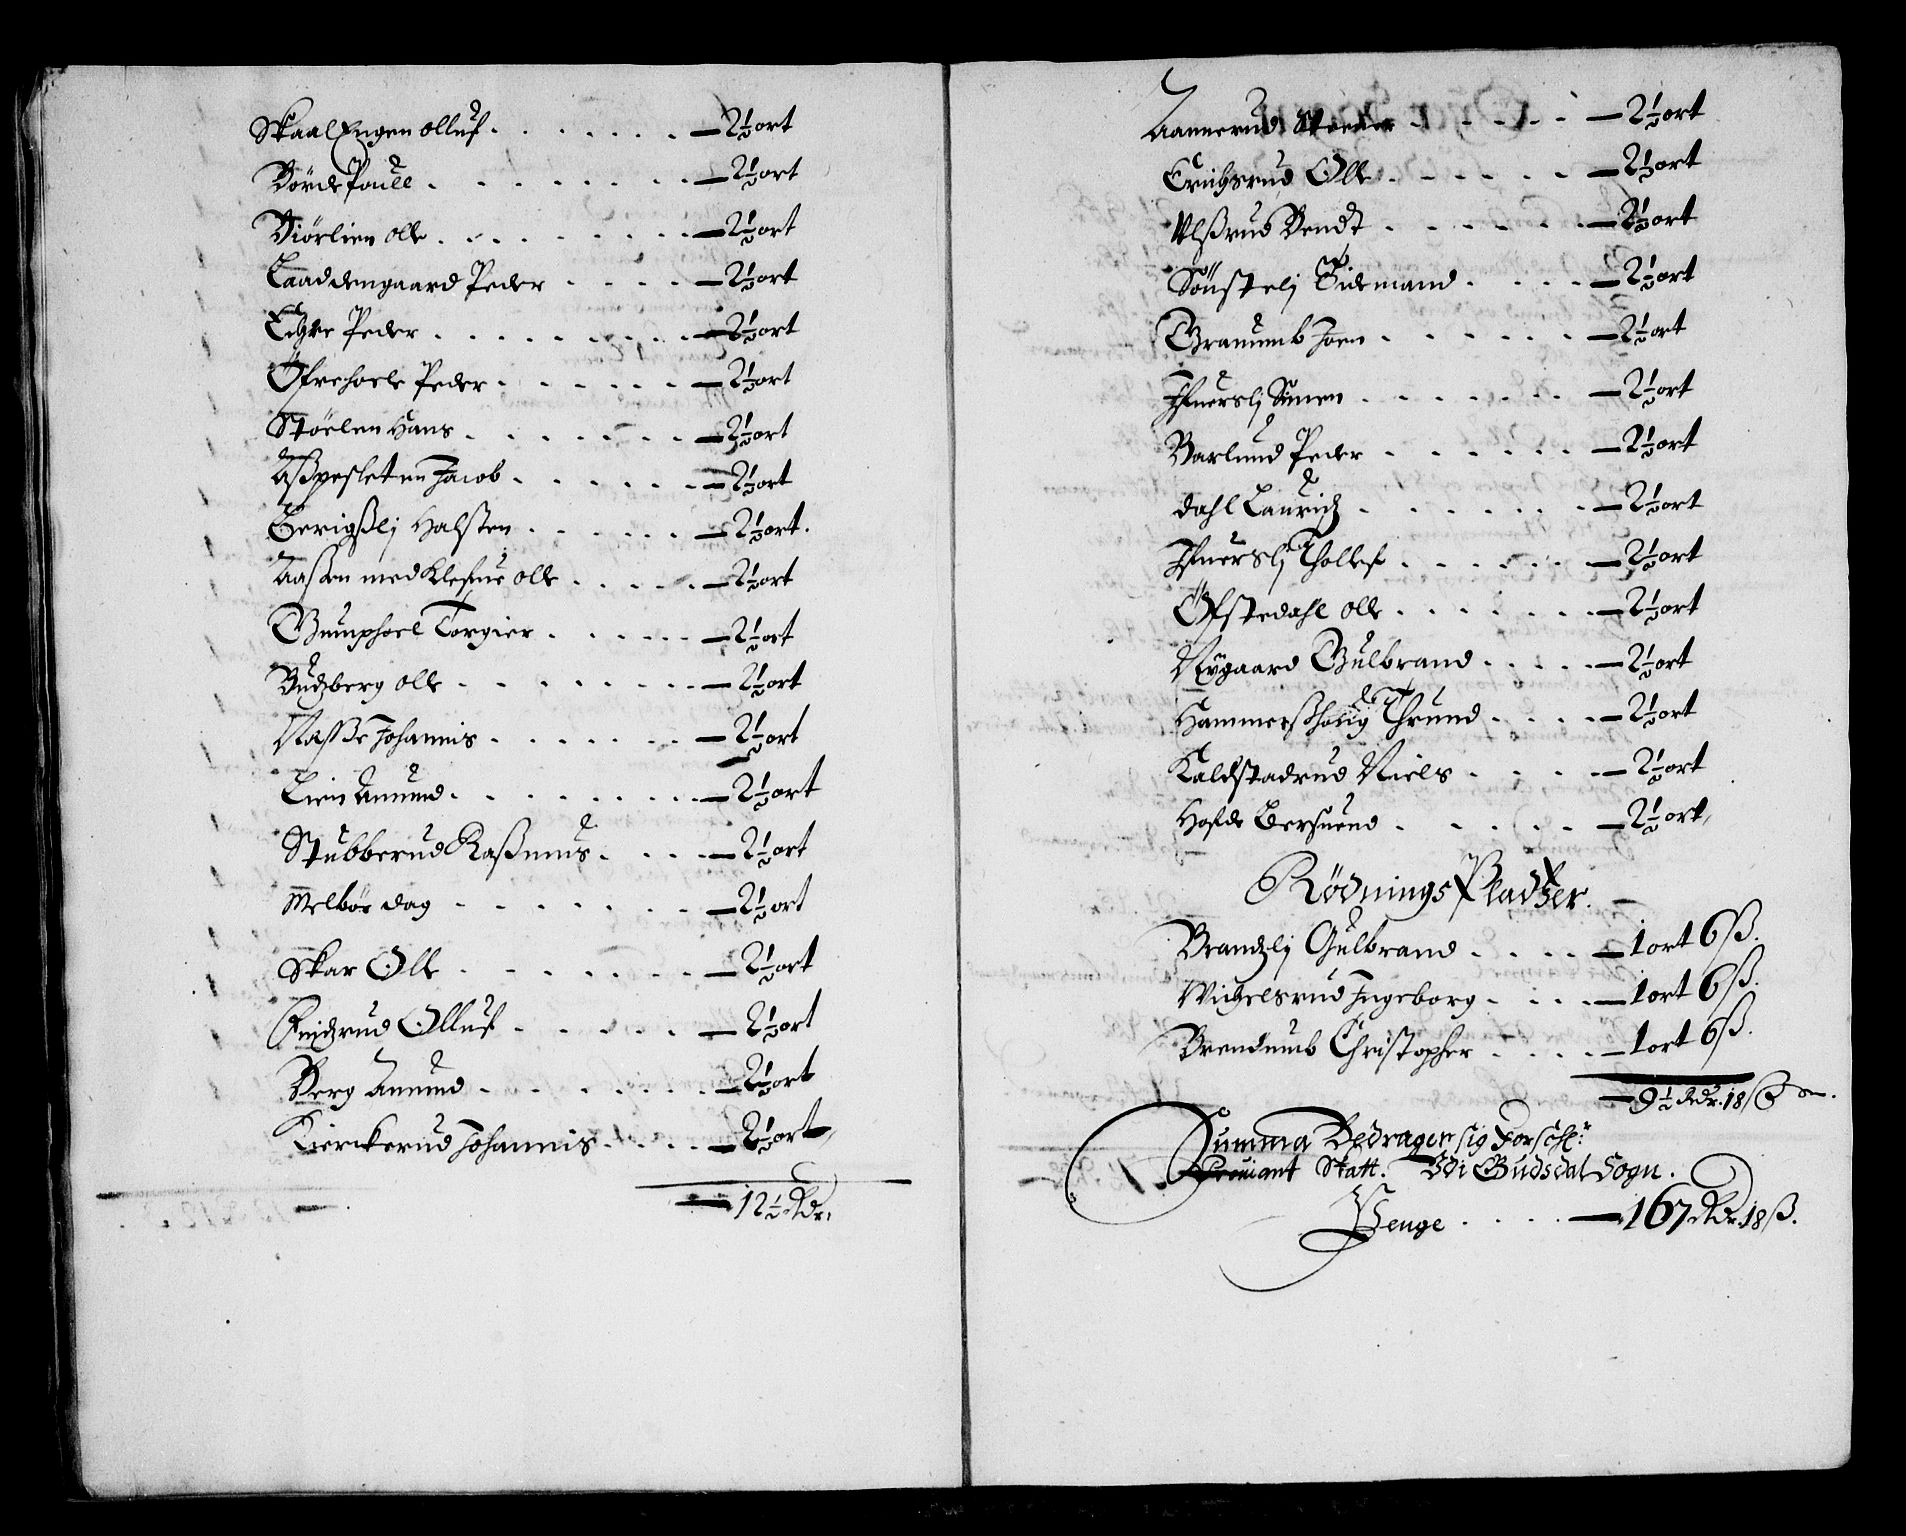 Skaal Engen olluf . . . . . . . — 2½ ort
Börde Pouell . . . . . . . . — 2½ ort
Biörlien olle . . . . . . . . — 2½ ort
Laaddengaard Peder . . . . — 2½ ort
Echre Peder . . . . . . . . — 2½ ort
Öfrehoele Peder . . . . . . — 2½ ort
Stöelen Hans . . . . . . . — 2½ ort
Aßpesletenn Jacob . . . . . . — 2½ ort
Berigßlj Halsten . . . . . . — 2½ ort.
Aaßen med Klefue olle . . . . . — 2½ ort
Gumphoel Torgier . . . . . — 2½ ort
Budzberg olle . . . . . . . . — 2½ ort
Naſße Johannis . . . . . . . — 2½ ort
Lien Amund . . . . . . . . . — 2½ ort
Stubberud Raßmus . . . . — 2½ ort
Melböe dag . . . . . . . — 2½ ort
Skar Olle . . . . . . . — 2½ ort
Olluf . . . . . — 2½ ort
Berg Amund . . . . . . . . — 2½ ort
Kierckerud Johannis . . . . — 2½ ort
— 12½ Rdr.
Aannerud . . . . — 2½ ort
Erichsrud Olle . . . . . . — 2½ ort
Ulßrud Bendt . . . . . . — 2½ ort
Sönstelj Tidemand . . . . — 2½ ort
Graumb Joen . . . . . . — 2½ ort
Simen . . . . . . . — 2½ ort
Barlund Peder . . . . . . — 2½ ort
dahl Lauridz . . . . . . . — 2½ ort
Thollef . . . . . . — 2½ ort
Öfstedahl olle . . . . . . . — 2½ ort
Nygaard Gulbrand . . . . . — 2½ ort
Hammerßhoug Thrund . . . . — 2½ ort
Kaldstadrud Niels . . . . — 2½ ort
Hofde Bersuend . . . . . — 2½ ort,
Rödnings Pladtzer. —
Brandzlj Gulbrand . . . . — 1 ort 6 ß.
Michelsrud Ingeborg . . . . — 1 ort 6 ß.
Brendumb Christopher . . . . — 1 ort 6 ß.
— 9½ Rdr. 18 ß
Summa Bedrager sig Forschr:
Prouiant Skatt. Udi Gudsdal Sogn.
Penge . . . . — 167 Rdr. 18 ß.